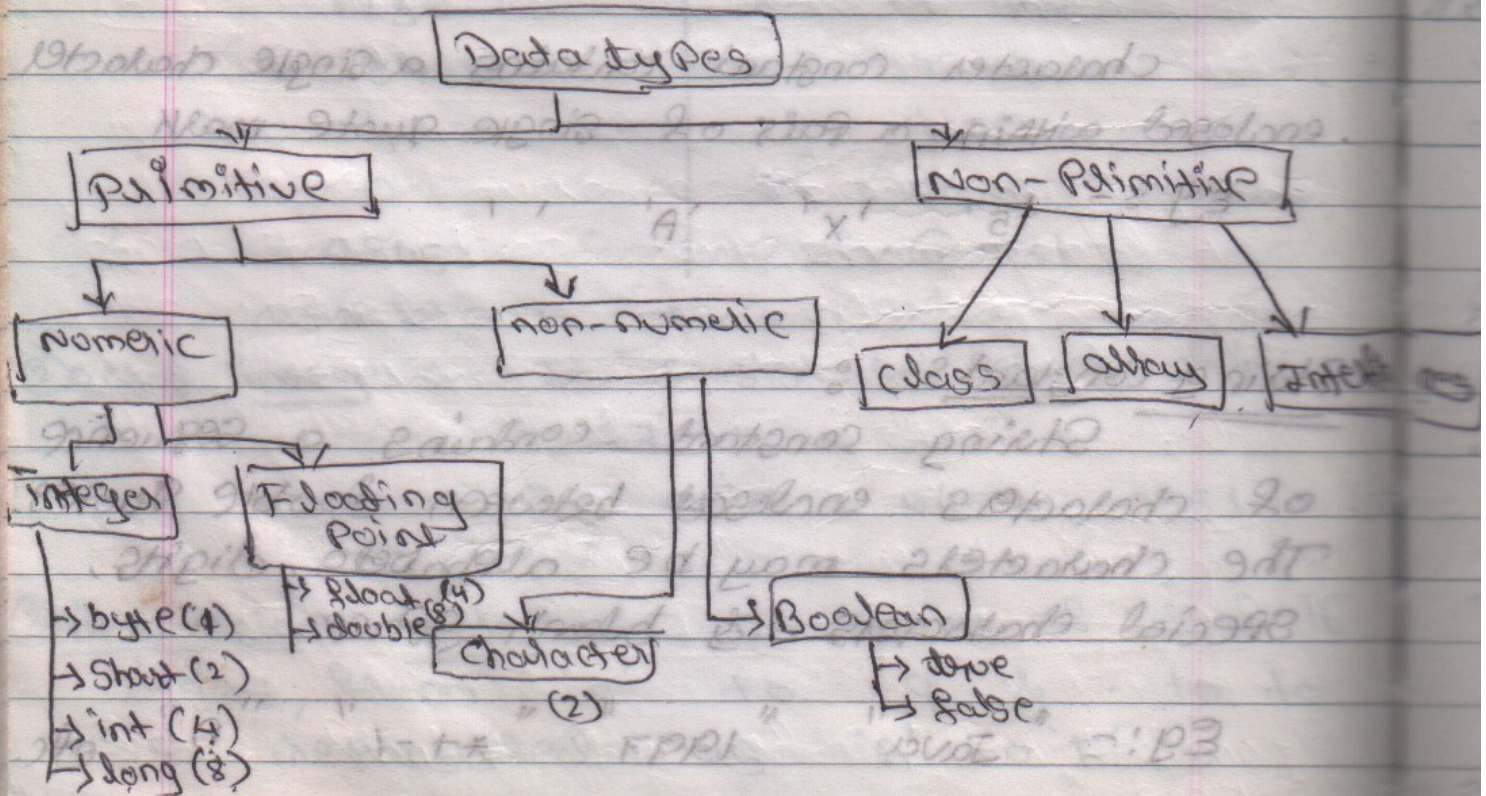 Data types
Primitive
Non-Primitive
Numeric
non-numeric
Class
array
integer
Floating
Point
→ byte (1)
→ Short (2)
→ int (4)
→ long (8)
→ float (4)
→ double (8)
Character
(2)
Boolean
→ true
→ false